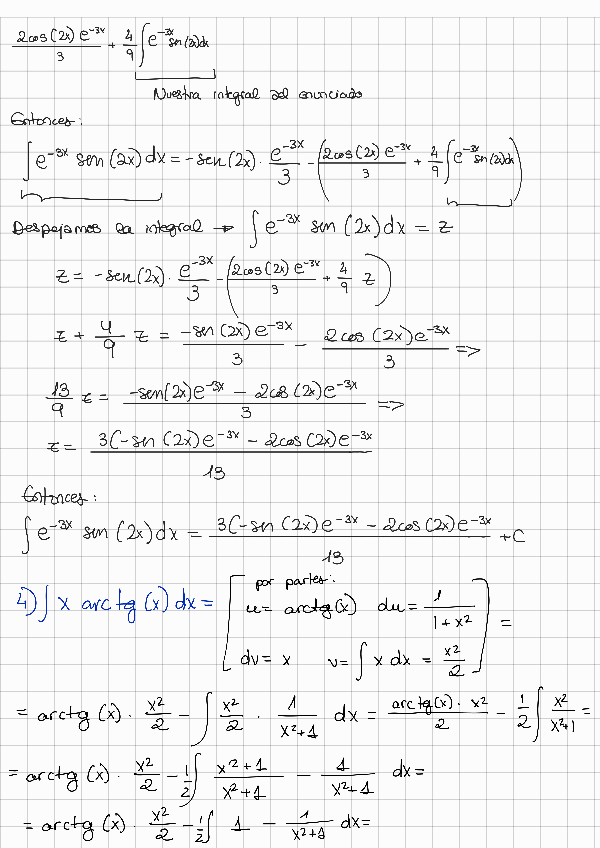 2cos(2x) e^{-3x}/3 + 4/9 ∫ e^{-3x} sen(2x)dx
Nuestra integral del enunciado
Entonces:
∫ e^{-3x} sen(2x) dx = -sen(2x) · e^{-3x}/3 - (2cos(2x) e^{-3x}/3 + 4/9 ∫ e^{-3x} sen(2x)dx)
Despejamos la integral → ∫ e^{-3x} sen(2x)dx = z
z = -sen(2x) · e^{-3x}/3 - (2cos(2x) e^{-3x}/3 + 4/9 z)
z + 4/9 z = -sen(2x)e^{-3x}/3 - 2cos(2x)e^{-3x}/3 =>
13/9 z = -sen(2x)e^{-3x} - 2cos(2x)e^{-3x}/3 =>
z = 3(-sen(2x)e^{-3x} - 2cos(2x)e^{-3x}/13
Entonces:
∫ e^{-3x} sen(2x)dx = 3(-sen(2x)e^{-3x} - 2cos(2x)e^{-3x}/13 + C
4) ∫ x arctg(x) dx = [por partes:
u = arctg(x) du = 1/(1+x²)
dv = x v = ∫ x dx = x²/2] =
= arctg(x) · x²/2 - ∫ x²/2 · 1/(x²+1) dx = arctg(x) · x²/2 - 1/2 ∫ x²/(x²+1) =
= arctg(x) · x²/2 - 1/2 ∫ (x²+1)/(x²+1) - 1/(x²+1) dx =
= arctg(x) · x²/2 - 1/2 ∫ 1 - 1/(x²+1) dx =